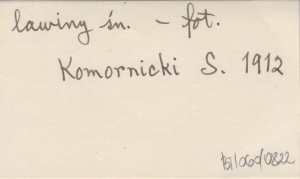 lawiny śn. – fot.
Komornicki S. 1912
Bi/060/0822